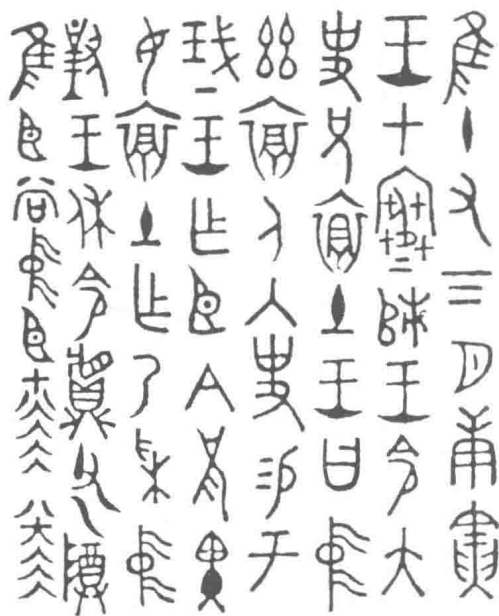 隹十又三月庚寅
王才寒次王令大
史兄褱土王曰中
茲褱人入史易于
珷王乍臣今兄畀
女褱土乍乃采中
對王休令父乙尊
隹臣尚中臣七八六六六六八七六六六六